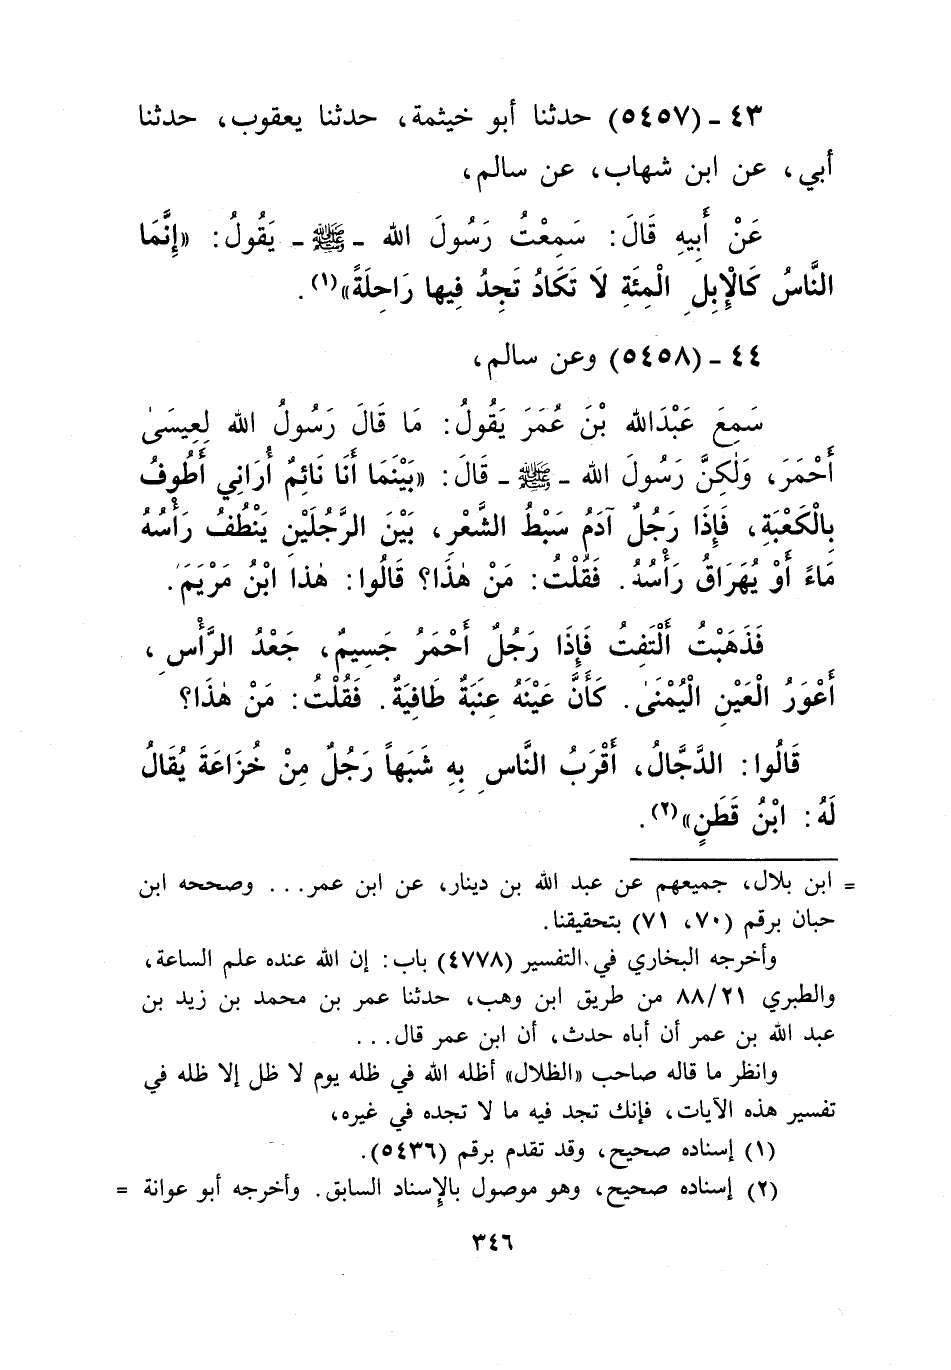 ٤٣ - (٥٤٥٧) حدثنا أبو خيثمة، حدثنا يعقوب، حدثنا
أبي، عن ابن شهاب، عن سالم،
عَنْ أَبِيهِ قَالَ: سَمِعْتُ رَسُولَ الله - ﷺ - يَقُولُ: «إِنَّمَا
النَّاسُ كَالْإِبِلِ الْمِئَةِ لَا تَكَادُ تَجِدُ فِيها رَاحِلَةً»(١).
٤٤ - (٥٤٥٨) وعن سالم،
سَمِعَ عَبْدَالله بْنَ عُمَرَ يَقُولُ: مَا قَالَ رَسُولُ الله لِعِيسَىٰ
أَحْمَرَ، وَلٰكِنَّ رَسُولَ الله - ﷺ - قَالَ: «بَيْنَمَا أَنَا نَائِمٌ أُرَانِي أَطُوفُ
بِالْكَعْبَةِ، فَإِذَا رَجُلٌ آدَمُ سَبْطُ الشَّعْرِ، بَيْنَ الرَّجُلَيْنِ يَنْطُفُ رَأْسُهُ
مَاءً أَوْ يُهَرَاقُ رَأْسُهُ. فَقُلْتُ: مَنْ هٰذَا؟ قَالُوا: هٰذا ابْنُ مَرْيَمَ.
فَذَهَبْتُ أَلْتَفِتُ فَإِذَا رَجُلٌ أَحْمَرُ جَسِيمٌ، جَعْدُ الرَّأْسِ،
أَعْوَرُ الْعَيْنِ الْيُمْنَىٰ. كَأَنَّ عَيْنَهُ عِنَبَةٌ طَافِيَةٌ. فَقُلْتُ: مَنْ هٰذَا؟
قَالُوا: الدَّجَّالُ، أَقْرَبُ النَّاسِ بِهِ شَبَهاً رَجُلٌ مِنْ خُزَاعَةَ يُقَالُ
لَهُ: ابْنُ قَطَنٍ»(٢).
= ابن بلال، جميعهم عن عبد الله بن دينار، عن ابن عمر... وصححه ابن
حبان برقم (٧٠، ٧١) بتحقيقنا.
وأخرجه البخاري في التفسير (٤٧٧٨) باب: إن الله عنده علم الساعة،
والطبري ٨٨/٢١ من طريق ابن وهب، حدثنا عمر بن محمد بن زيد بن
عبد الله بن عمر أن أباه حدث، أن ابن عمر قال...
وانظر ما قاله صاحب «الظلال» أظله الله في ظله يوم لا ظل إلا ظله في
تفسير هذه الآيات، فإنك تجد فيه ما لا تجده في غيره،
(١) إسناده صحيح، وقد تقدم برقم (٥٤٣٦).
(٢) إسناده صحيح، وهو موصول بالإسناد السابق. وأخرجه أبو عوانة =
٣٤٦